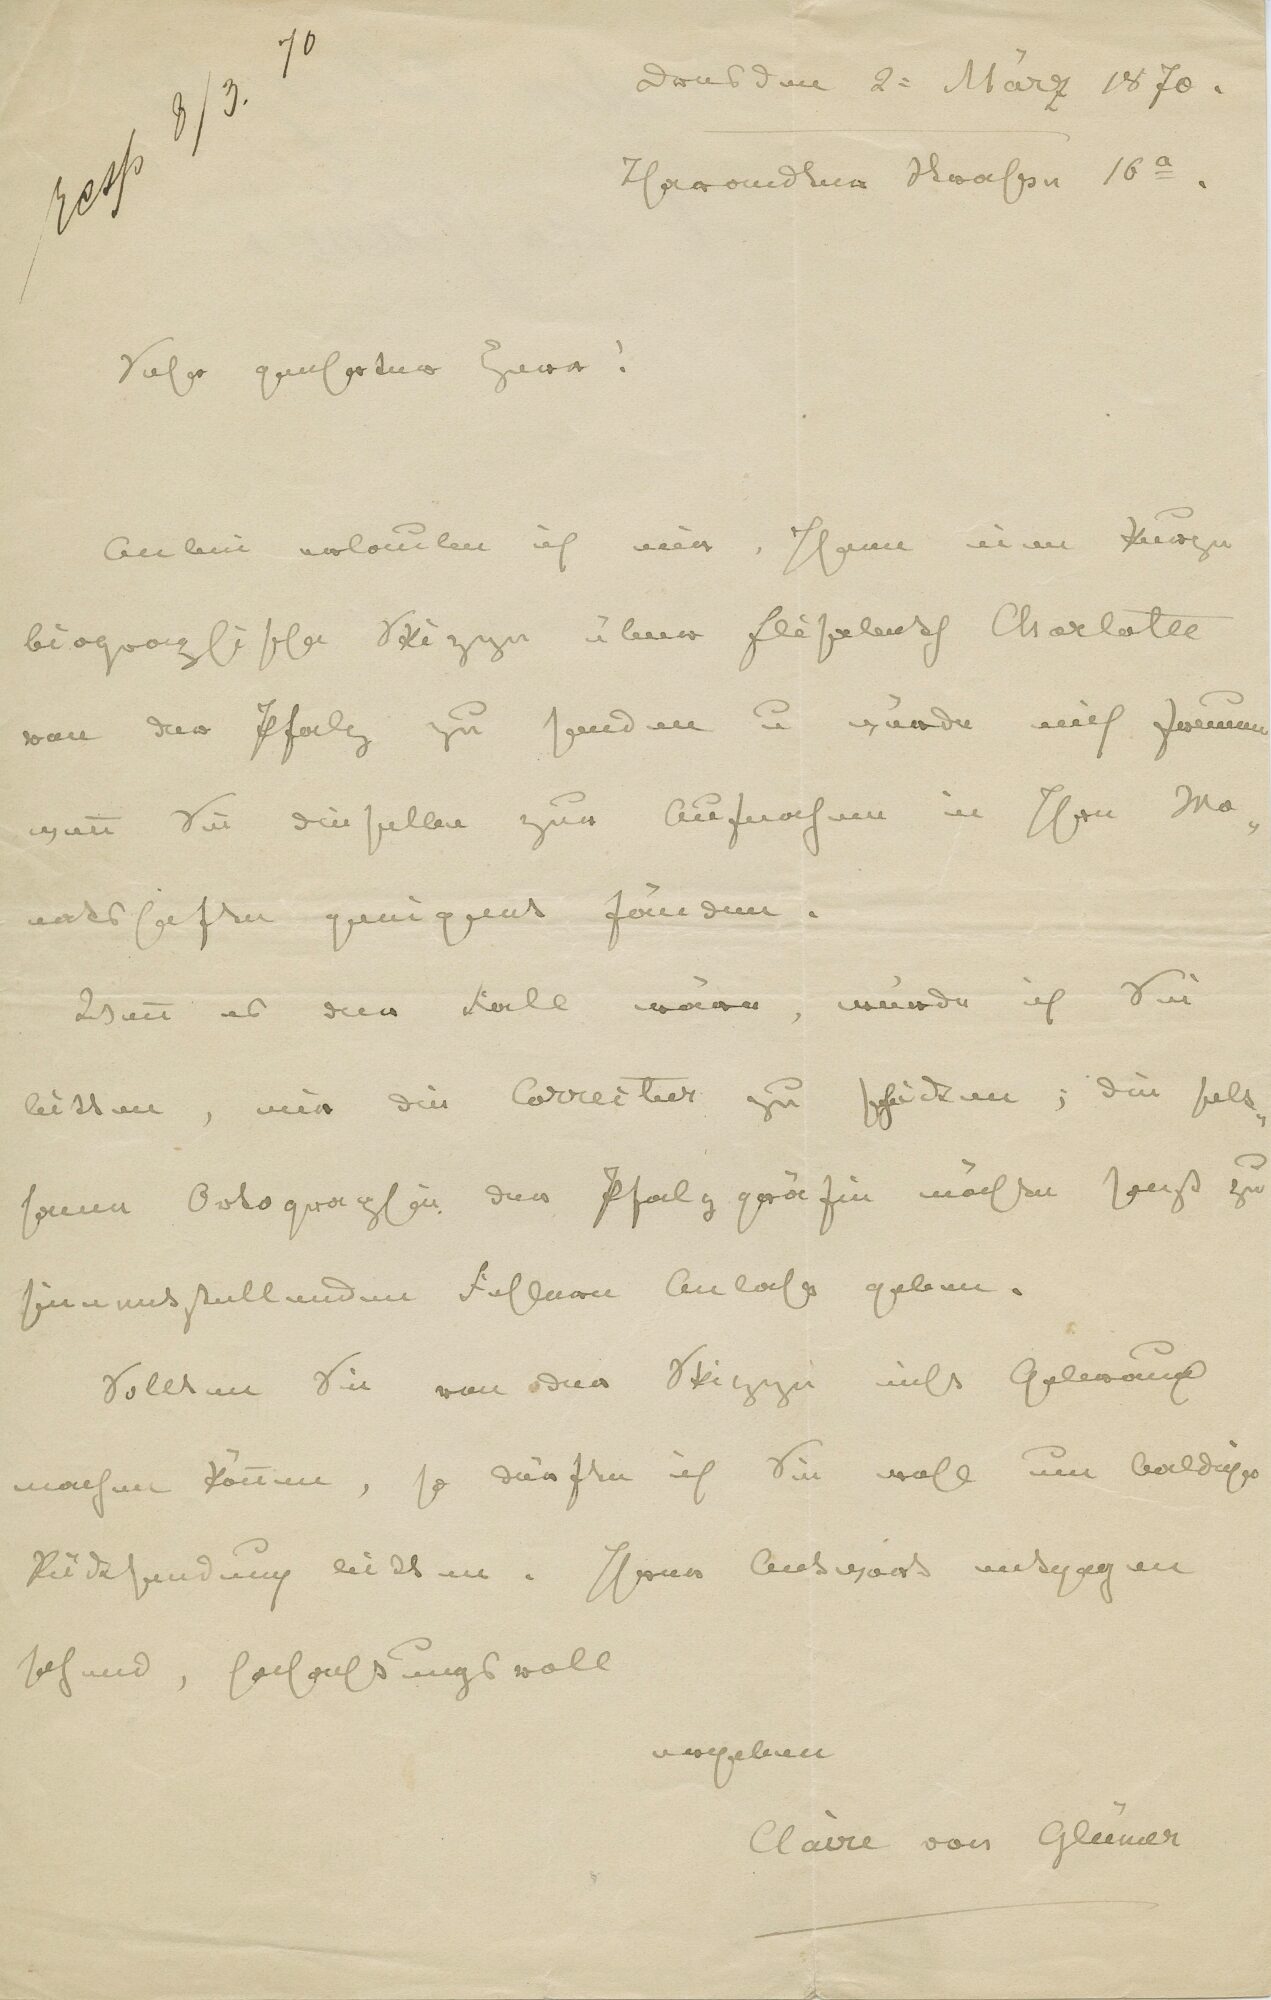 resp 8/3. 70
Dresden 2: März 1870.
Tharandter Strasse 16a.
Sehr geehrter Herr!
Anbei erlaube ich mir, Ihnen eine kurze
biographische Skizze über Elisabeth Charlotte
von der Pfalz zu senden u würde mich freuen
weñ Sie dieselbe zur Aufnahme in Ihre Mo„
natshefte geeignet fänden.
Weñ es der Fall wäre, würde ich Sie
bitten, mir die Correctur zu schicken; die selt„
same Ortographie der Pfalzgräfin möchte sonst zu
sinnentstellenden Fehlern Anlass geben.
Sollten Sie von der Skizze nicht Gebrauch
machen köñen, so dürfte ich Sie wohl um baldige
Rücksendung bitten. Ihrer Antwort entgegen
sehend, hochachtungsvoll
ergeben
Claire von Glümer